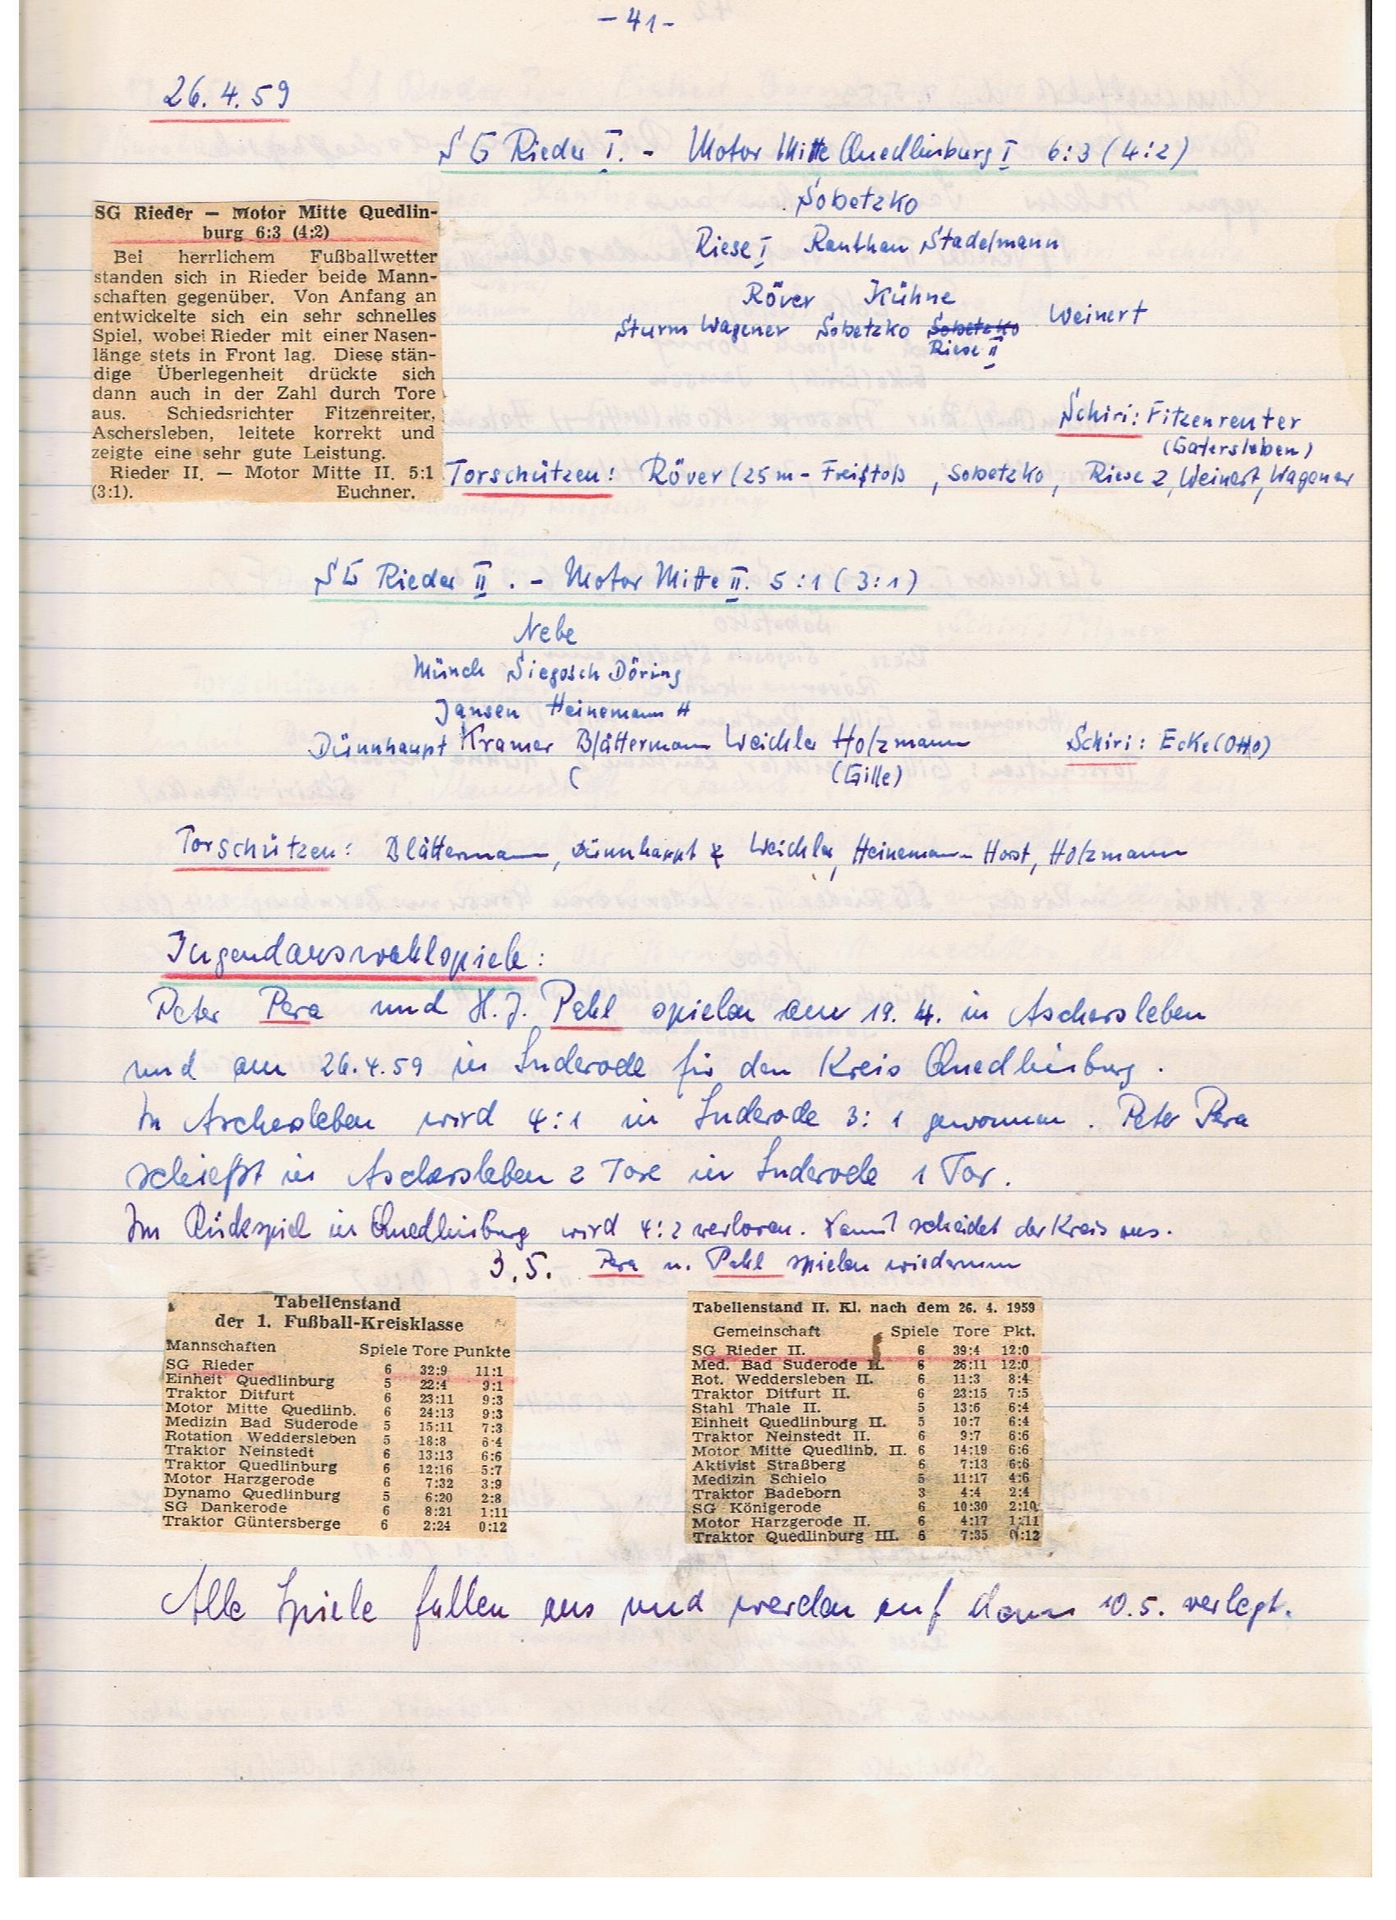 - 41 -
26.4.59
SG Rieder I. - Motor Mitte Quedlinburg I 6:3 (4:2)
Sobetzko
Riese I Ranthan Stadelmann
Röver Kühne
Sturm Wagener Sobetzko Sobetzko Weinert
Riese II
SG Rieder — Motor Mitte Quedlin-
burg 6:3 (4:2)
Bei herrlichem Fußballwetter
standen sich in Rieder beide Mann-
schaften gegenüber. Von Anfang an
entwickelte sich ein sehr schnelles
Spiel, wobei Rieder mit einer Nasen-
länge stets in Front lag. Diese stän-
dige Überlegenheit drückte sich
dann auch in der Zahl durch Tore
aus. Schiedsrichter Fitzenreiter,
Aschersleben, leitete korrekt und
zeigte eine sehr gute Leistung.
Rieder II. — Motor Mitte II. 5:1
(3:1). Euchner.
Schiri: Fitzenreuter
(Gatersleben)
Torschützen: Röver (25 m - Freistoß, Sobetzko, Riese 2, Weinert, Wagener
SG Rieder II. - Motor Mitte II. 5:1 (3:1)
Nebe
Münch Siegosch Döring
Jansen Heinemann H
Dünnhaupt Kramer Blättermann Weichler Holzmann
( (Gille)
Schiri: Ecke (Otto)
Torschützen: Blättermann, Dünnhaupt Weichler, Heinemann Horst, Holzmann
Jugendauswahlspiele:
Peter Pera und H. J. Pahl spielen am 19. 4. in Aschersleben
und am 26.4.59 in Suderode für den Kreis Quedlinburg.
In Aschersleben wird 4:1 in Suderode 3:1 gewonnen. Peter Pera
schießt in Aschersleben 2 Tore in Suderode 1 Tor.
Im Rückspiel in Quedlinburg wird 4:2 verloren. Damit scheidet der Kreis aus.
3.5. Pera u. Pahl spielen wiederum
Tabellenstand
der 1. Fußball-Kreisklasse
Mannschaften Spiele Tore Punkte
SG Rieder 6 32:9 11:1
Einheit Quedlinburg 5 22:4 9:1
Traktor Ditfurt 6 23:11 9:3
Motor Mitte Quedlinb. 6 24:13 9:3
Medizin Bad Suderode 5 15:11 7:3
Rotation Weddersleben 5 18:8 6:4
Traktor Neinstedt 6 13:13 6:6
Traktor Quedlinburg 6 12:16 5:7
Motor Harzgerode 6 7:32 3:9
Dynamo Quedlinburg 5 6:20 2:8
SG Dankerode 6 8:21 1:11
Traktor Güntersberge 6 2:24 0:12
Tabellenstand II. Kl. nach dem 26. 4. 1959
Gemeinschaft Spiele Tore Pkt.
SG Rieder II. 6 39:4 12:0
Med. Bad Suderode II. 6 26:11 12:0
Rot. Weddersleben II. 6 11:3 8:4
Traktor Ditfurt II. 6 23:15 7:5
Stahl Thale II. 5 13:6 6:4
Einheit Quedlinburg II. 5 10:7 6:4
Traktor Neinstedt II. 6 9:7 6:6
Motor Mitte Quedlinb. II. 6 14:19 6:6
Aktivist Straßberg 6 7:13 6:6
Medizin Schielo 5 11:17 4:6
Traktor Badeborn 3 4:4 2:4
SG Königerode 6 10:30 2:10
Motor Harzgerode II. 6 4:17 1:11
Traktor Quedlinburg III. 6 7:35 0:12
Alle Spiele fallen aus und werden auf dem 10.5. verlegt.